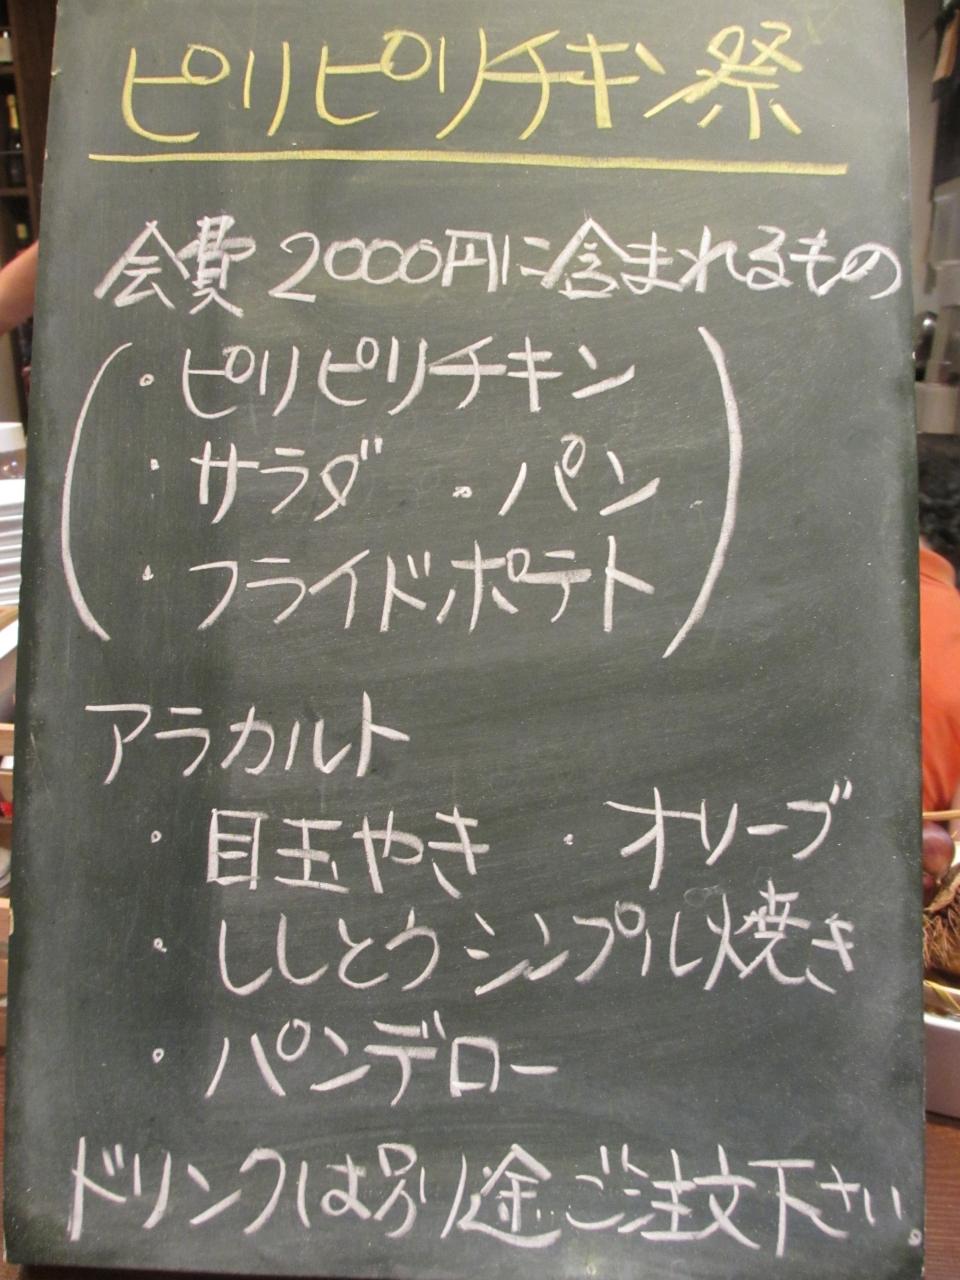 ピリピリチキン祭
会費2000円に含まれるもの
・ピリピリチキン
・サラダ ・パン
・フライドポテト
アラカルト
・目玉やき ・オリーブ
・ししとうシンプル焼き
・パンデロー
ドリンクは別途ご注文下さい。